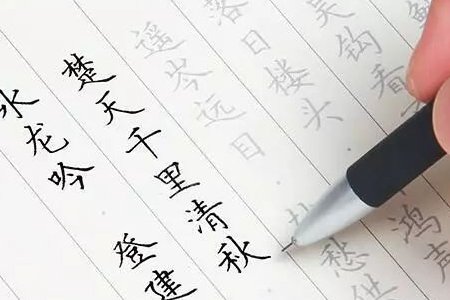 水龙吟 登建
楚天千里清秋
遥岑远目 愁
落日楼头 鸿声
吴钩看